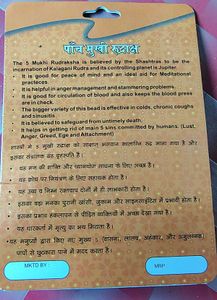 पाँच मुखी रुद्राक्ष
The 5 Mukhi Rudraksha is believed by the Shashtras to be the
incarnation of Kalagani Rudra and its controlling planet is Jupiter.
• It is good for peace of mind and an ideal aid for Meditational
practices.
• It is helpful in anger management and stammering problems.
• It is good for circulation of blood and also keeps the blood press
are in check.
• The bigger variety of this bead is effective in colds, chronic coughs
and sinusitis.
• It is believed to safeguard from untimely death.
• It helps in getting rid of main 5 sins committed by humans. (Lust,
Anger, Greed, Ego and Attachment)
शास्त्रों में 5 मुखी रुद्राक्ष को साक्षात् भगवान कालाग्नि रुद्र माना गया है और
इसका संचालन ग्रह बृहस्पति है।
• यह मन की शान्ति और ध्यानयोग साधना के लिए अच्छा है।
• यह क्रोध पर नियंत्रण के लिए सहायक होता है।
• यह उच्च व निम्न रक्तचाप दोनों में ही लाभकारी होता है।
• इसका बड़ा मनका पुरानी खांसी, जुकाम और साइनसाइटिस में प्रभावी होता है।
• इसका प्रभाव हकलापन से पीड़ित व्यक्तियों में अच्छा देखा गया है।
• यह धारकर्ता में मृत्यु का भय मिटाता है।
• यह मनुष्यों द्वारा किए गए मुख्य 5 (वासना, लालच, अहंकार, और
पापों से छुटकारा पाने में मदद करता है।
MKTD BY :
MRP